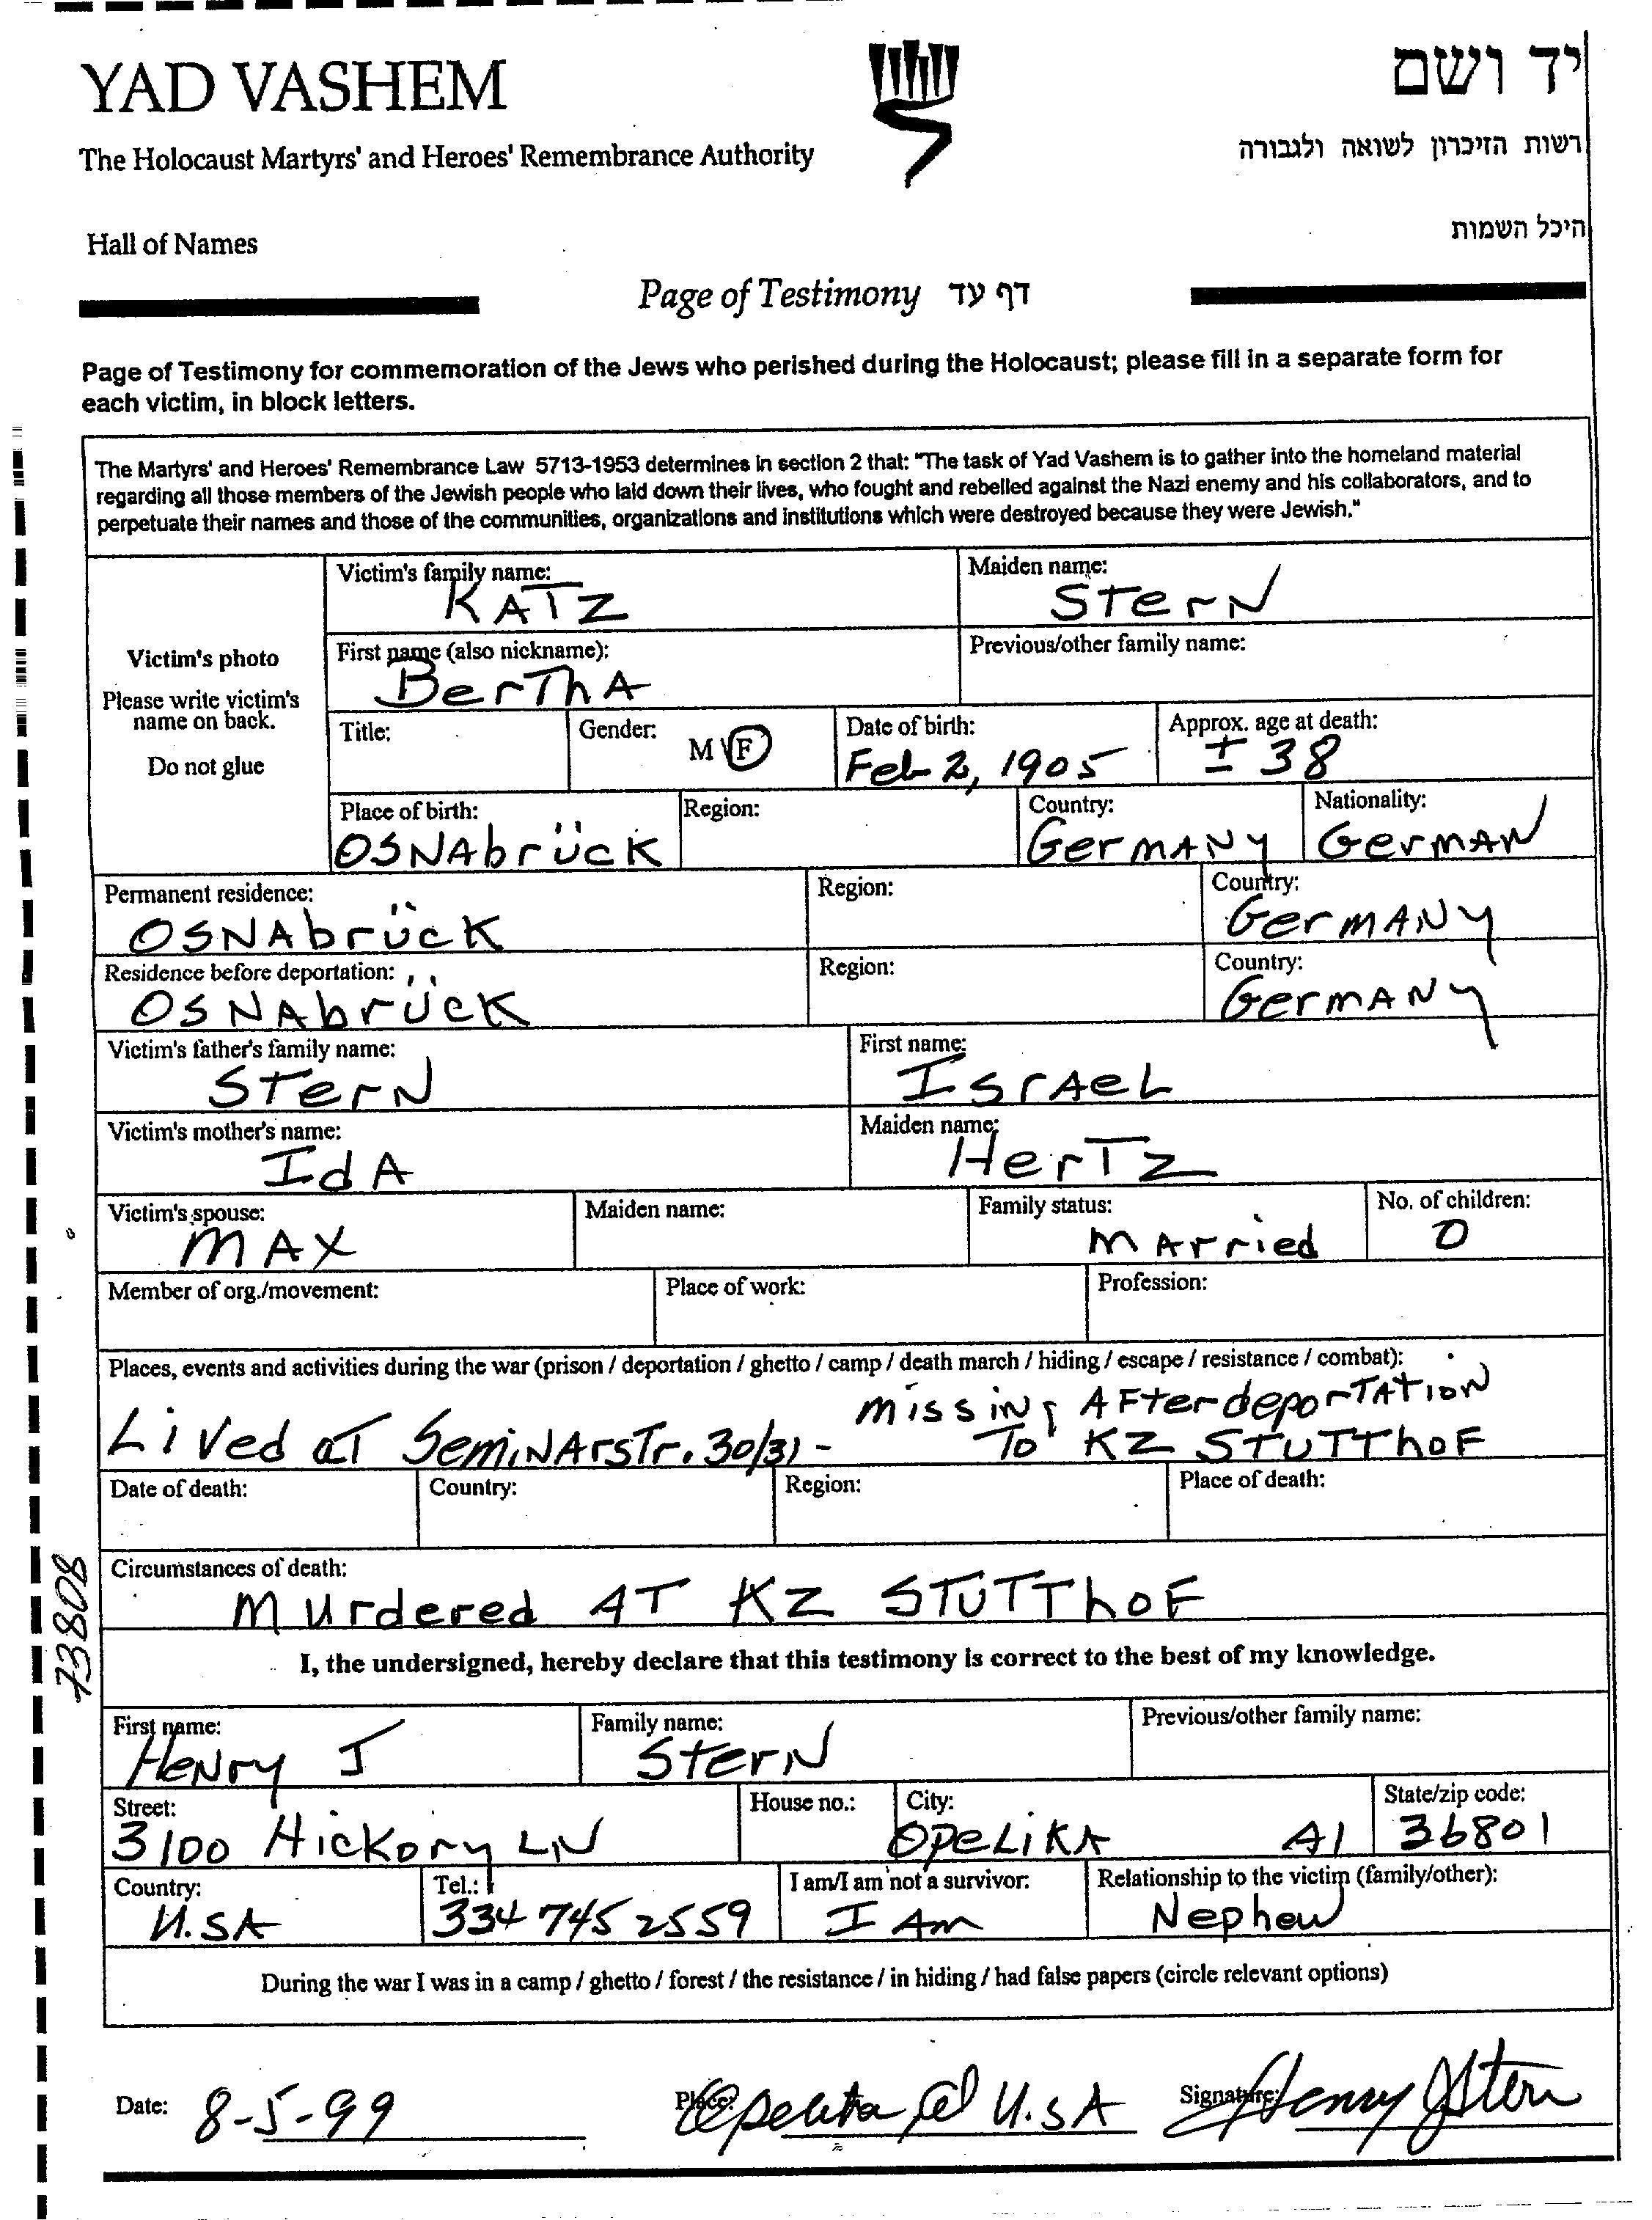 YAD VASHEM
יד ושם
The Holocaust Martyrs' and Heroes' Remembrance Authority
רשות הזיכרון לשואה ולגבורה
Hall of Names
היכל השמות
Page of Testimony דף עד
Page of Testimony for commemoration of the Jews who perished during the Holocaust; please fill in a separate form for
each victim, in block letters.
The Martyrs' and Heroes' Remembrance Law 5713-1953 determines in section 2 that: "The task of Yad Vashem is to gather into the homeland material
regarding all those members of the Jewish people who laid down their lives, who fought and rebelled against the Nazi enemy and his collaborators, and to
perpetuate their names and those of the communities, organizations and institutions which were destroyed because they were Jewish."
Victim's photo
Please write victim's
name on back.
Do not glue
Victim's family name: Maiden name:
KATZ STerN
First name (also nickname): Previous/other family name:
BerThA
Title: Gender: M F Date of birth: Approx. age at death:
Feb 2, 1905 ± 38
Place of birth: Region: Country: Nationality:
OSNAbrücK GerMANy GerMAN
Permanent residence: Region: Country:
OSNAbrücK GerMANy
Residence before deportation: Region: Country:
OSNAbrücK GerMANy
Victim's father's family name: First name:
STerN ISrAeL
Victim's mother's name: Maiden name:
IdA HerTZ
Victim's spouse: Maiden name: Family status: No. of children:
MAX MArried 0
Member of org./movement: Place of work: Profession:
Places, events and activities during the war (prison / deportation / ghetto / camp / death march / hiding / escape / resistance / combat):
Lived aT SemiNArsTr. 30/31 - missing AFter deporTATioN
To KZ STUTThoF
Date of death: Country: Region: Place of death:
Circumstances of death:
Murdered AT KZ STUTThoF
I, the undersigned, hereby declare that this testimony is correct to the best of my knowledge.
First name: Family name: Previous/other family name:
HeNry J SterN
Street: House no.: City: State/zip code:
3100 Hickory LN OpeLiKA Al 36801
Country: Tel.: I am/I am not a survivor: Relationship to the victim (family/other):
U.SA 334 745 2559 I Am Nephew
During the war I was in a camp / ghetto / forest / the resistance / in hiding / had false papers (circle relevant options)
Date: 8-5-99 Place: Opelika Al U.SA Signature: Henry J Stern
73808